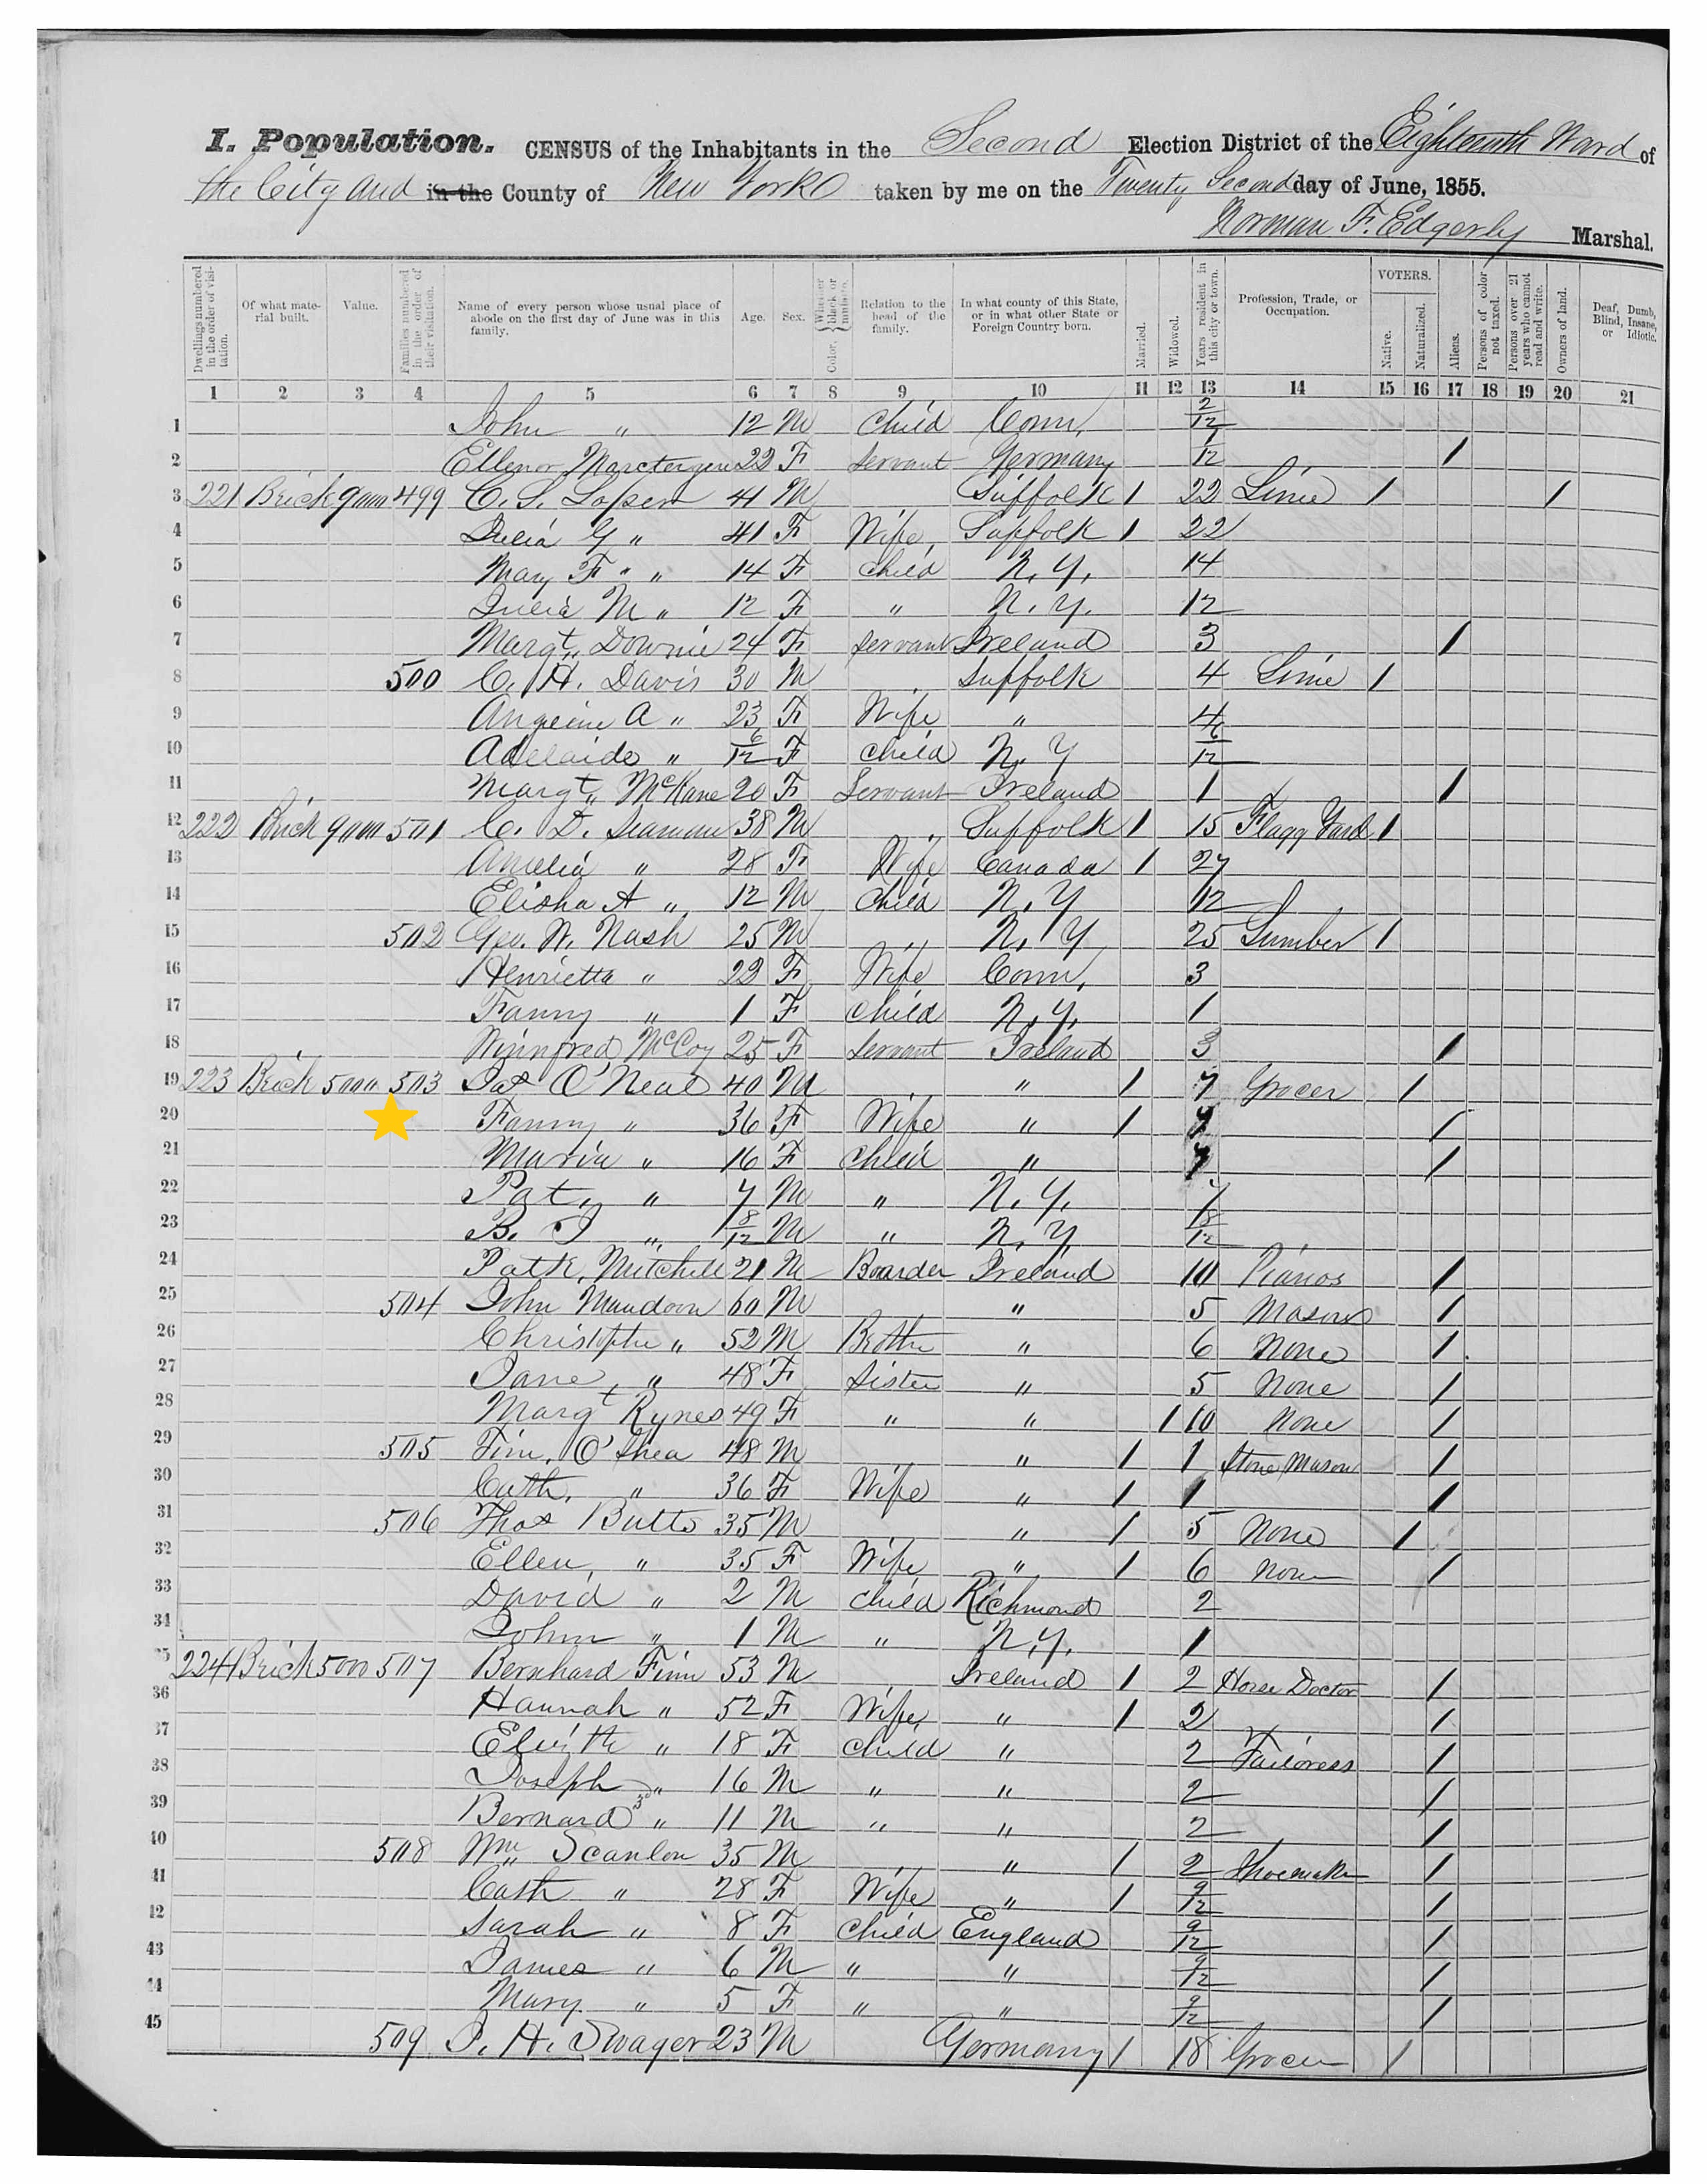 I. Population. CENSUS of the Inhabitants in the Second Election District of the Eighteenth Ward of
the City and in the County of New York taken by me on the Twenty Second day of June, 1855.
Norman F. Edgerly Marshal.
Dwellings numbered in the order of visitation. Of what material built. Value. Families numbered in the order of their visitation. Name of every person whose usual place of abode on the first day of June was in this family. Age. Sex. Color, Whether black or mulatto. Relation to the head of the family. In what county of this State, or in what other State or Foreign Country born. Married. Widowed. Years resident in this city or town. Profession, Trade, or Occupation. VOTERS. Native. Naturalized. Aliens. Persons of color not taxed. Persons over 21 years who cannot read and write. Owners of land. Deaf, Dumb, Blind, Insane, or Idiotic.
1 2 3 4 5 6 7 8 9 10 11 12 13 14 15 16 17 18 19 20 21
1 John " 12 M Child Conn. 2/12
2 Ellenor 22 F Servant Germany 1/12 1
3 221 Brick 9000 499 C. S. Loper 41 M Suffolk 1 22 Lime 1 1
4 Julia G " 41 F Wife Suffolk 1 22
5 Mary F " " 14 F Child N. Y. 14
6 Julia M " 12 F " N. Y. 12
7 Margt. Downie 24 F Servant Ireland 3 1
8 500 C. H. Davis 30 M Suffolk 4 Lime 1
9 A " 23 F Wife " 4
10 Adelaide " 6/12 F Child N. Y 6/12
11 Margt. McKane 20 F Servant Ireland 1 1
12 222 Brick 9000 501 C. D. Seaman 38 M Suffolk 1 15 Flagg Yard 1
13 Amelia " 28 F Wife Canada 1 27
14 Elisha A " 12 M Child N. Y 12
15 502 Geo. W. Nash 25 M N. Y 25 Lumber 1
16 Henrietta " 22 F Wife Conn. 3
17 Fanny " 1 F Child N. Y. 1
18 Winnfred McCoy 25 F Servant Ireland 3 1
19 223 Brick 5000 503 Pat O'Neal 40 M " 1 7 Grocer 1
20 Fanny " 36 F Wife " 1 7 1
21 Maria " 16 F Child " 7 1
22 Pat. " 7 M " N. Y. 7
23 B. " 8/12 M " N. Y. 8/12
24 Patk. Mitchell 21 M Boarder Ireland 10 Pianos 1
25 504 John Mundoon 60 M " 5 Mason 1
26 Christophe " 52 M Brothe " 6 None 1
27 Jane " 48 F Sister " 5 None 1
28 Margt Rynes 49 F " " 1 10 None 1
29 505 Tim. O'Shea 48 M " 1 1 Stone Mason 1
30 Cath. " 36 F Wife " 1 1 1
31 506 Thos Butts 35 M " 1 5 None 1
32 Ellen " 35 F Wife " 1 6 None 1
33 David " 2 M Child Richmond 2
34 John " 1 M " N. Y. 1
35 224 Brick 5000 507 Bernhard Finn 53 M Ireland 1 2 Horse Doctor 1
36 Hannah " 52 F Wife " 1 2 1
37 " 18 F Child " 2 Tailoress 1
38 Joseph " 16 M " " 2 1
39 Bernard " 11 M " " 2 1
40 508 Wm Scanlon 35 M " 1 2 Shoemaker 1
41 Cath " 28 F Wife " 1 9/12 1
42 Sarah " 8 F Child England 9/12 1
43 James " 6 M " " 9/12 1
44 Mary " 5 F " " 9/12 1
45 509 J. H. Swager 23 M Germany 1 18 Grocer 1